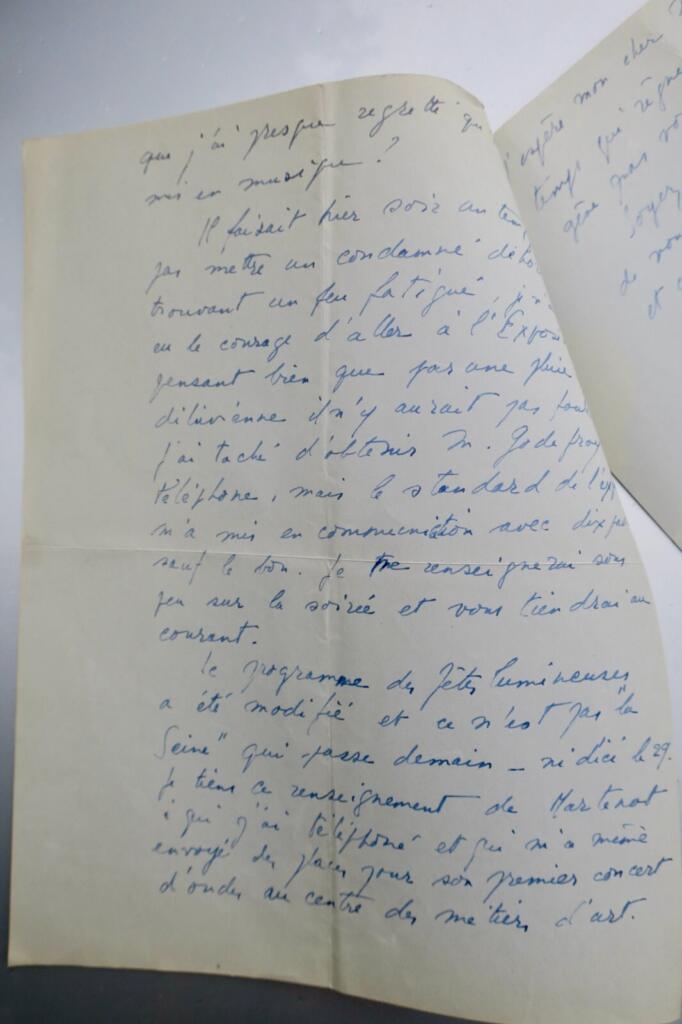 que j'ai presque regretté qu
mis en musique ?
Il faisait hier soir un tem
pas mettre un condamné deho
trouvant un peu fatigué, je n'
eu le courage d'aller à l'Expos
pensant bien que par une pluie
diluvienne il n'y aurait pas
j'ai taché d'obtenir M. Godefroy
téléphone, mais le standard de l'ex
m'a mis en communiction avec dix
sauf le bon. Je me renseignerai sous
peu sur la soirée et vous tiendrai au
courant.
Le programme des fêtes lumineuses
a été modifié et ce n'est pas "la
Seine" qui passe demain – ni d'ici le 29.
Je tiens ce renseignement de Martenot
à qui j'ai téléphoné et qui m'a même
envoyé des places pour son premier concert
d'ondes au centre des métiers d'art.
espère mon cher
temps qui règne
gêne pas vo
Soyez
de mon
et